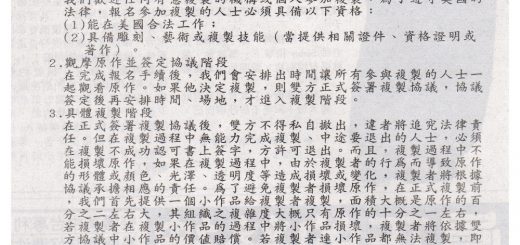 法律，報名參加複製的人士必須具備以下資格：
(1)能在美國合法工作；
(2)具備雕刻、藝術或複製技能（當提供相關證件、資格證明或
著作）。
2.觀摩原作並簽定協議階段
在完成報名手續後，我們會安排出時間讓所有參與複製的人士一
起觀看原作。如果他決定複製，則雙方正式簽署複製協議，協議
簽定後再安排時間、場地，才進入複製階段。
3.具體複製階段
在正式簽署複製協議後，雙方不得私自撤出，違者將追究法律責
任。但在複製過程中無能力完成複製、中途要退出的人士，必須
在複製不成功認可書上簽字，方許可退出。而且，複製過程中不
能損壞原作，如果在複製過程中，由於複製者的行為而導致原作
的形體或顏色、光澤、透明度等造成損壞或變化，複製者將根據
協議承擔相應的責任。為了避免複製者損壞原作，在正式複製前
，我們首先提供一個小作品給複製者複製，面積大概是原作的百
分之二左右大，其組織之複雜度大概只有原作的十分之一左右，
若複製者在複製小作品的過程中損壞了小作品，複製者將依據雙
方協議中小作品的價值賠償。若複製者連小作品都無法複製，即